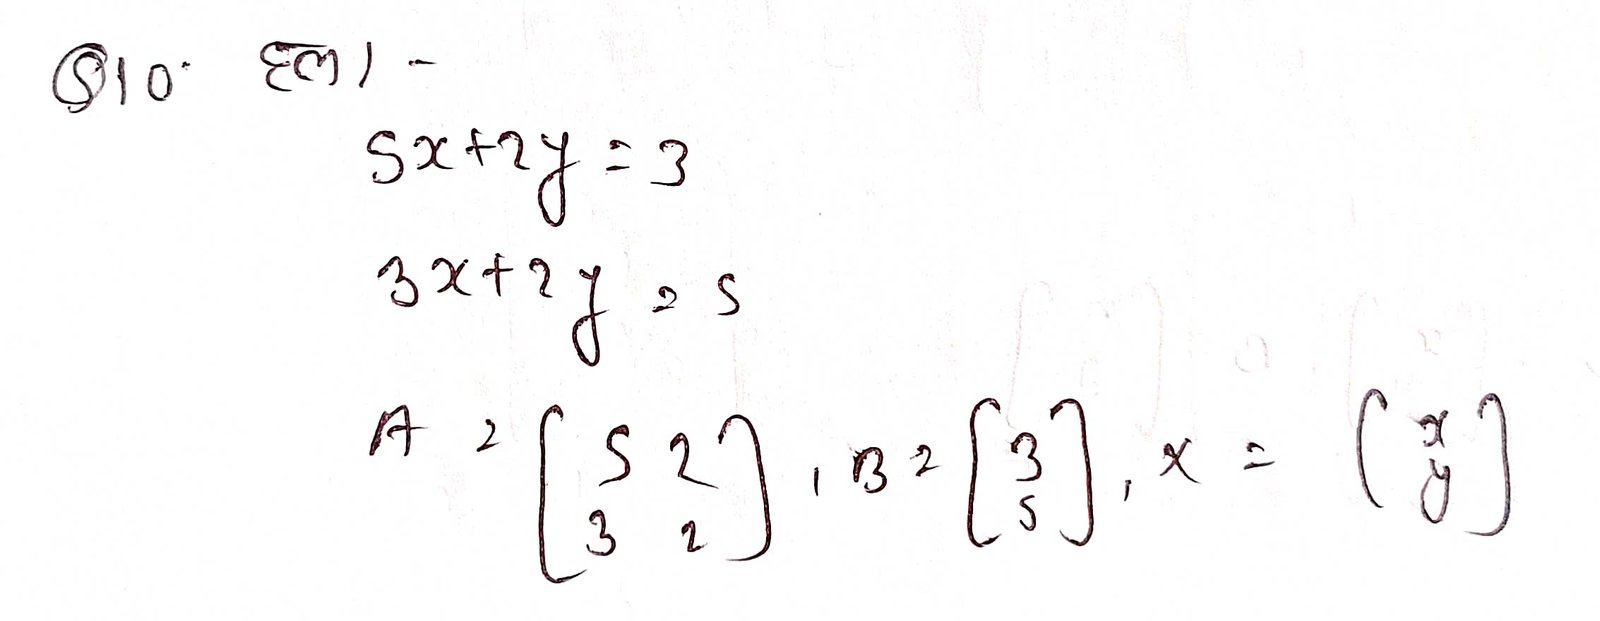 Q10. हल। -
5x+2y=3
3x+2y=5
A = [5 2
3 2], B = [3
5], X = [x
y]